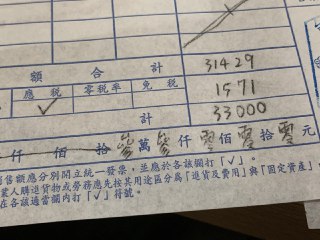 額 合 計 31429
應 稅 零稅率 免 稅 1571
✓
計 33000
仟 佰 拾 參 萬 參 仟 零 佰 零 拾 零 元
售額應分別開立統一發票，並應於各該欄打「✓」。
業人購進貨物或勞務應先按其用途區分為「進貨及費用」與「固定資產」，
在各該適當欄內打「✓」符號。